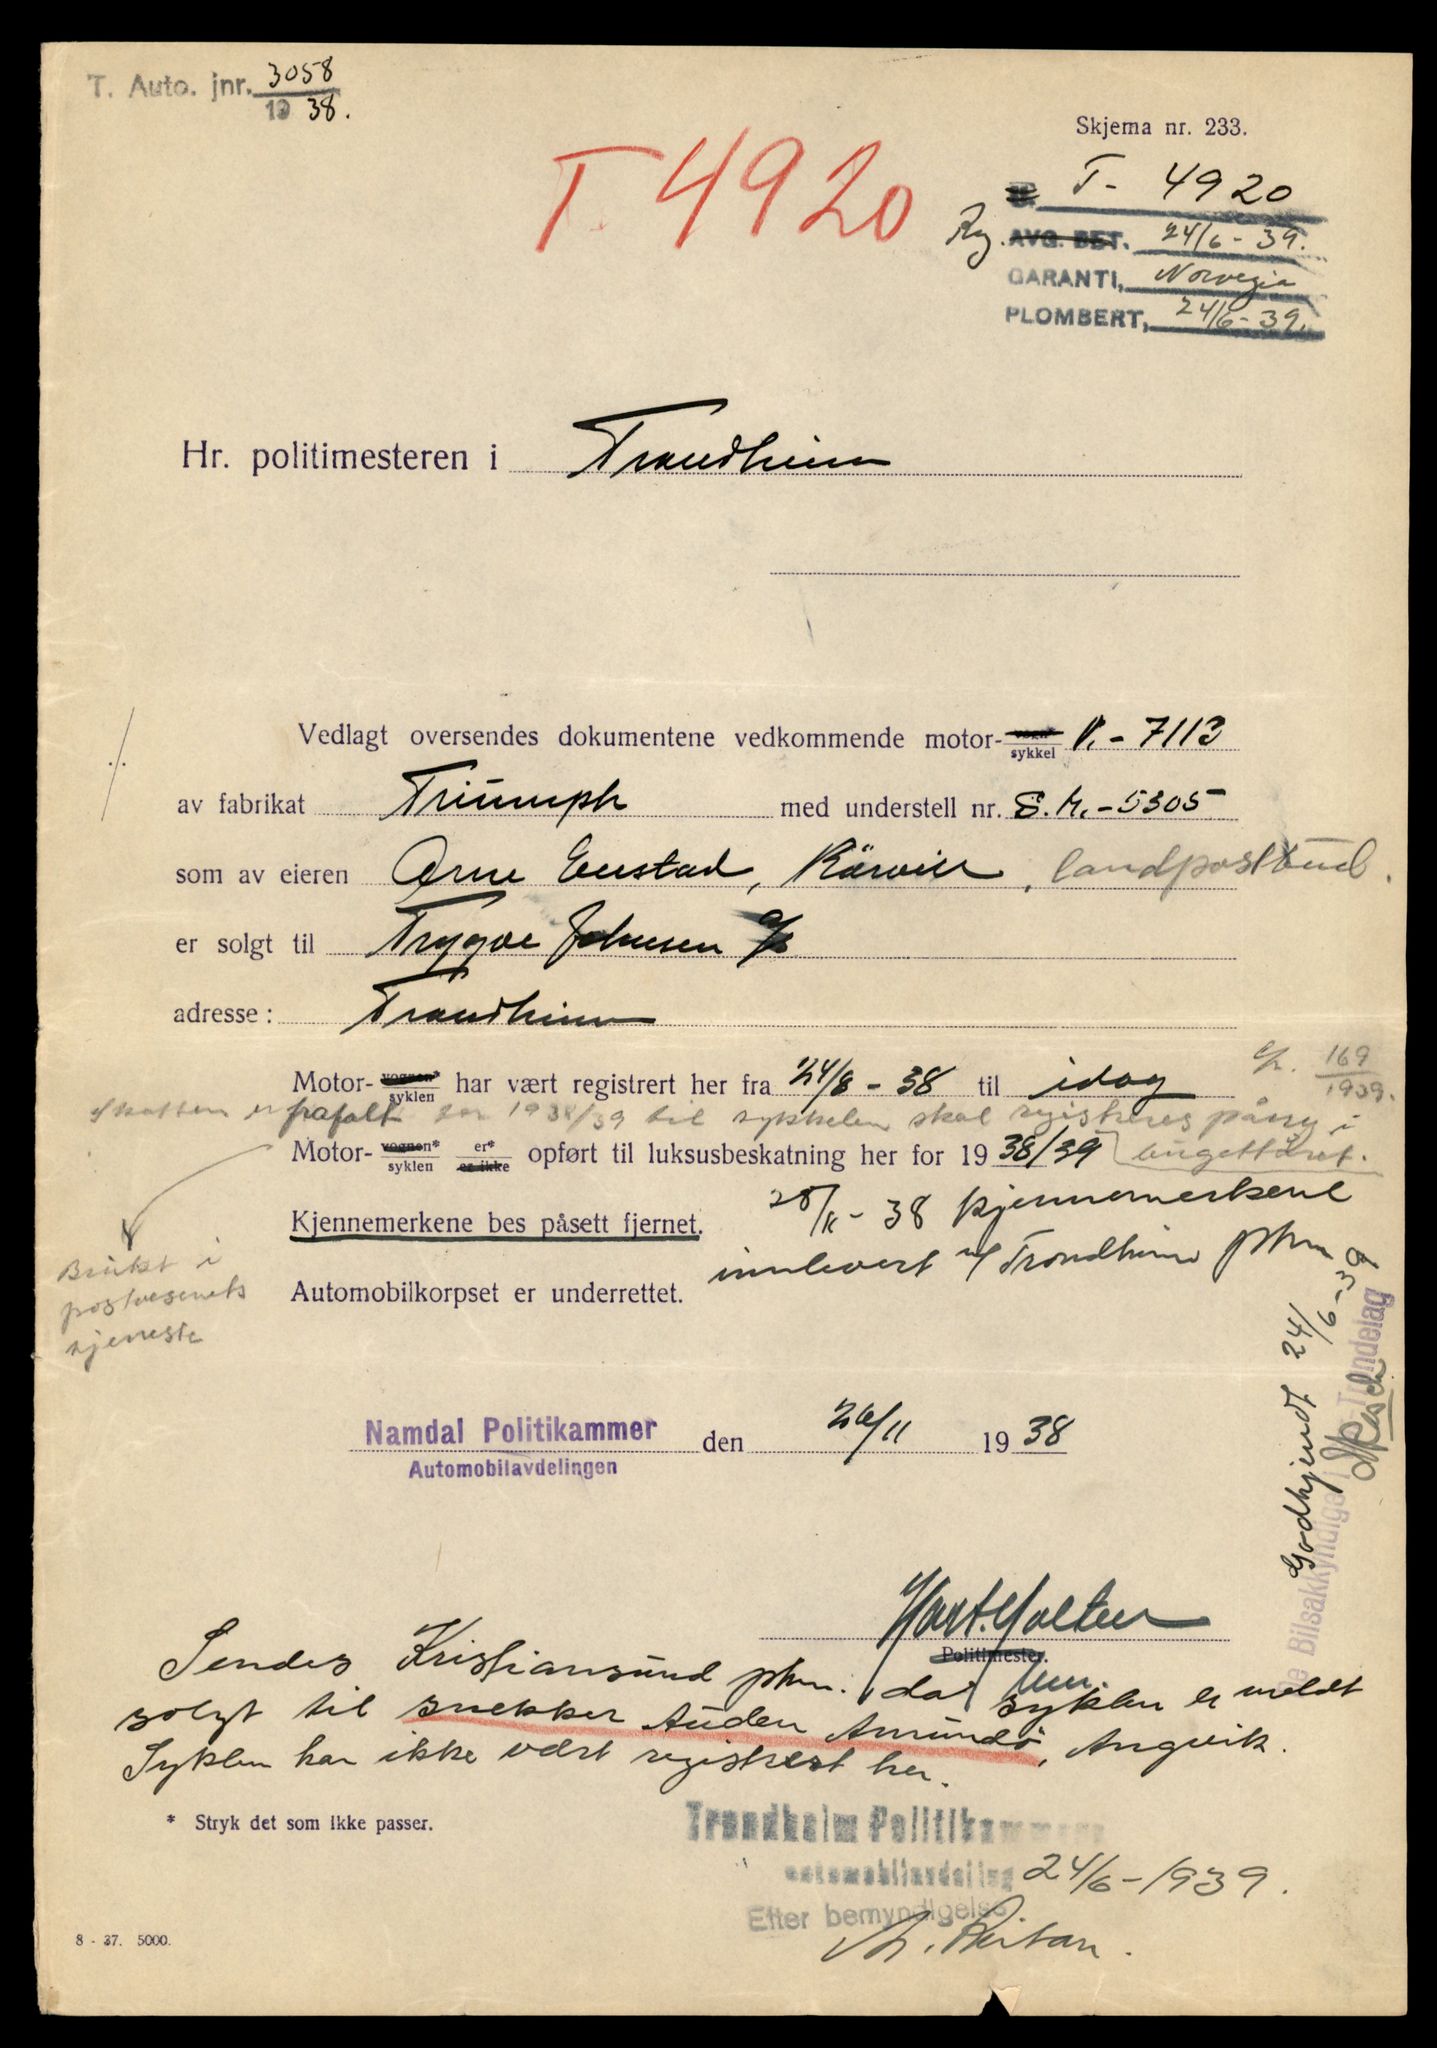 T. Auto. jnr. 3058
19 38.
Skjema nr. 233.
T 4920
T- 4920
Reg. AVG. BET. 24/6 - 39.
GARANTI, Norvegia
PLOMBERT, 24/6 - 39.
Hr. politimesteren i Trondheim
Vedlagt oversendes dokumentene vedkommende motor- vogn* sykkel V. - 7113
av fabrikat Triumph med understell nr. S.M. - 5305
som av eieren Arne Evestad, Rörvik, landpostbud.
er solgt til Trygve Johnsen A/S
adresse: Trondheim
Motor- vognen* syklen har vært registrert her fra 24/8 - 38 til idag
169
1939.
Skatten er frafalt for 1938/39 til sykkelen skal registreres påny i
Motor- vognen* syklen er* er ikke opført til luksusbeskatning her for 19 38/39 bugettåret.
Kjennemerkene bes påsett fjernet. 28/11 - 38 kjennemerkene
innlevert Trondheim pkm
Automobilkorpset er underrettet.
Brukt i
postvesenets
tjeneste
Godkjendt 24/6 - 39
De Bilsakkyndige i Trøndelag
Namdal Politikammer den 26/11 19 38
Automobilavdelingen
Politimester.
Sendes Kristiansund pkm. da syklen er meldt
solgt til snekker Auden Amundö, Angvik.
Syklen har ikke vært registrert her.
* Stryk det som ikke passer.
Trondheim Politikammer
automobilavdeling 24/6 - 1939.
Efter bemyndigelse
8 - 37. 5000.